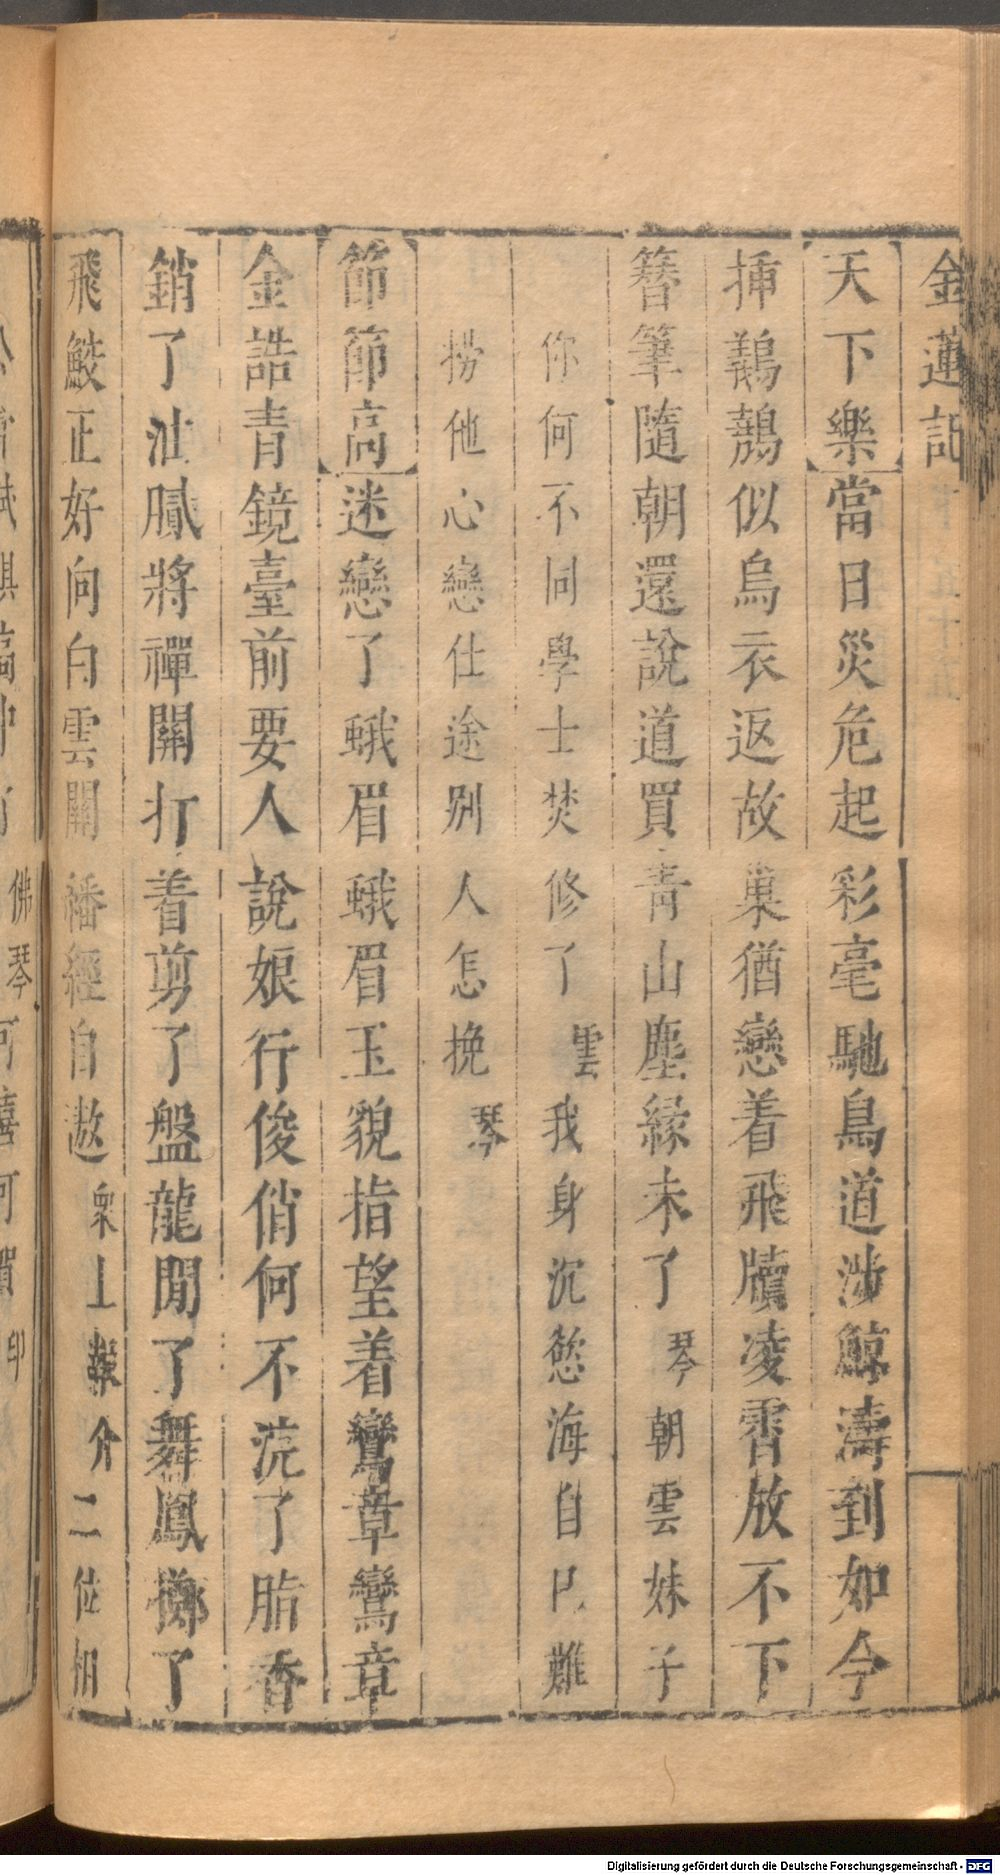 金蓮記
天下樂當日災危起彩毫馳鳥道涉鯨濤到如今
揷鷀鷸似烏衣返故巢猶戀着飛牘凌霄放不下
簪筆隨朝還說道買青山塵緣未了琴朝雲妹子
你何不同學士焚修了雲我身沉慾海自㔾難
撈他心戀仕途別人怎挽琴
節節高迷戀了蛾眉蛾眉玉貌指望着鸞章鸞章
金誥青鏡臺前要人說娘行俊俏何不浣了脂香
銷了油膩將禪關打着剪了盤龍閒了舞鳳擲了
飛鮫正好向白雲關繙經自遨衆上 介二位相
佛琴可喜可賀印
Digitalisierung gefördert durch die Deutsche Forschungsgemeinschaft - DFG